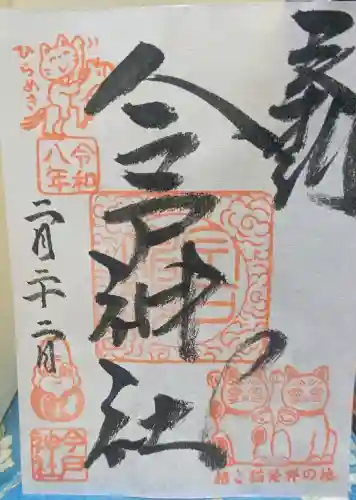 奉拝
今戸神社
ひらめき
令和
八年
二月二十二日
今戸
招き猫発祥の地